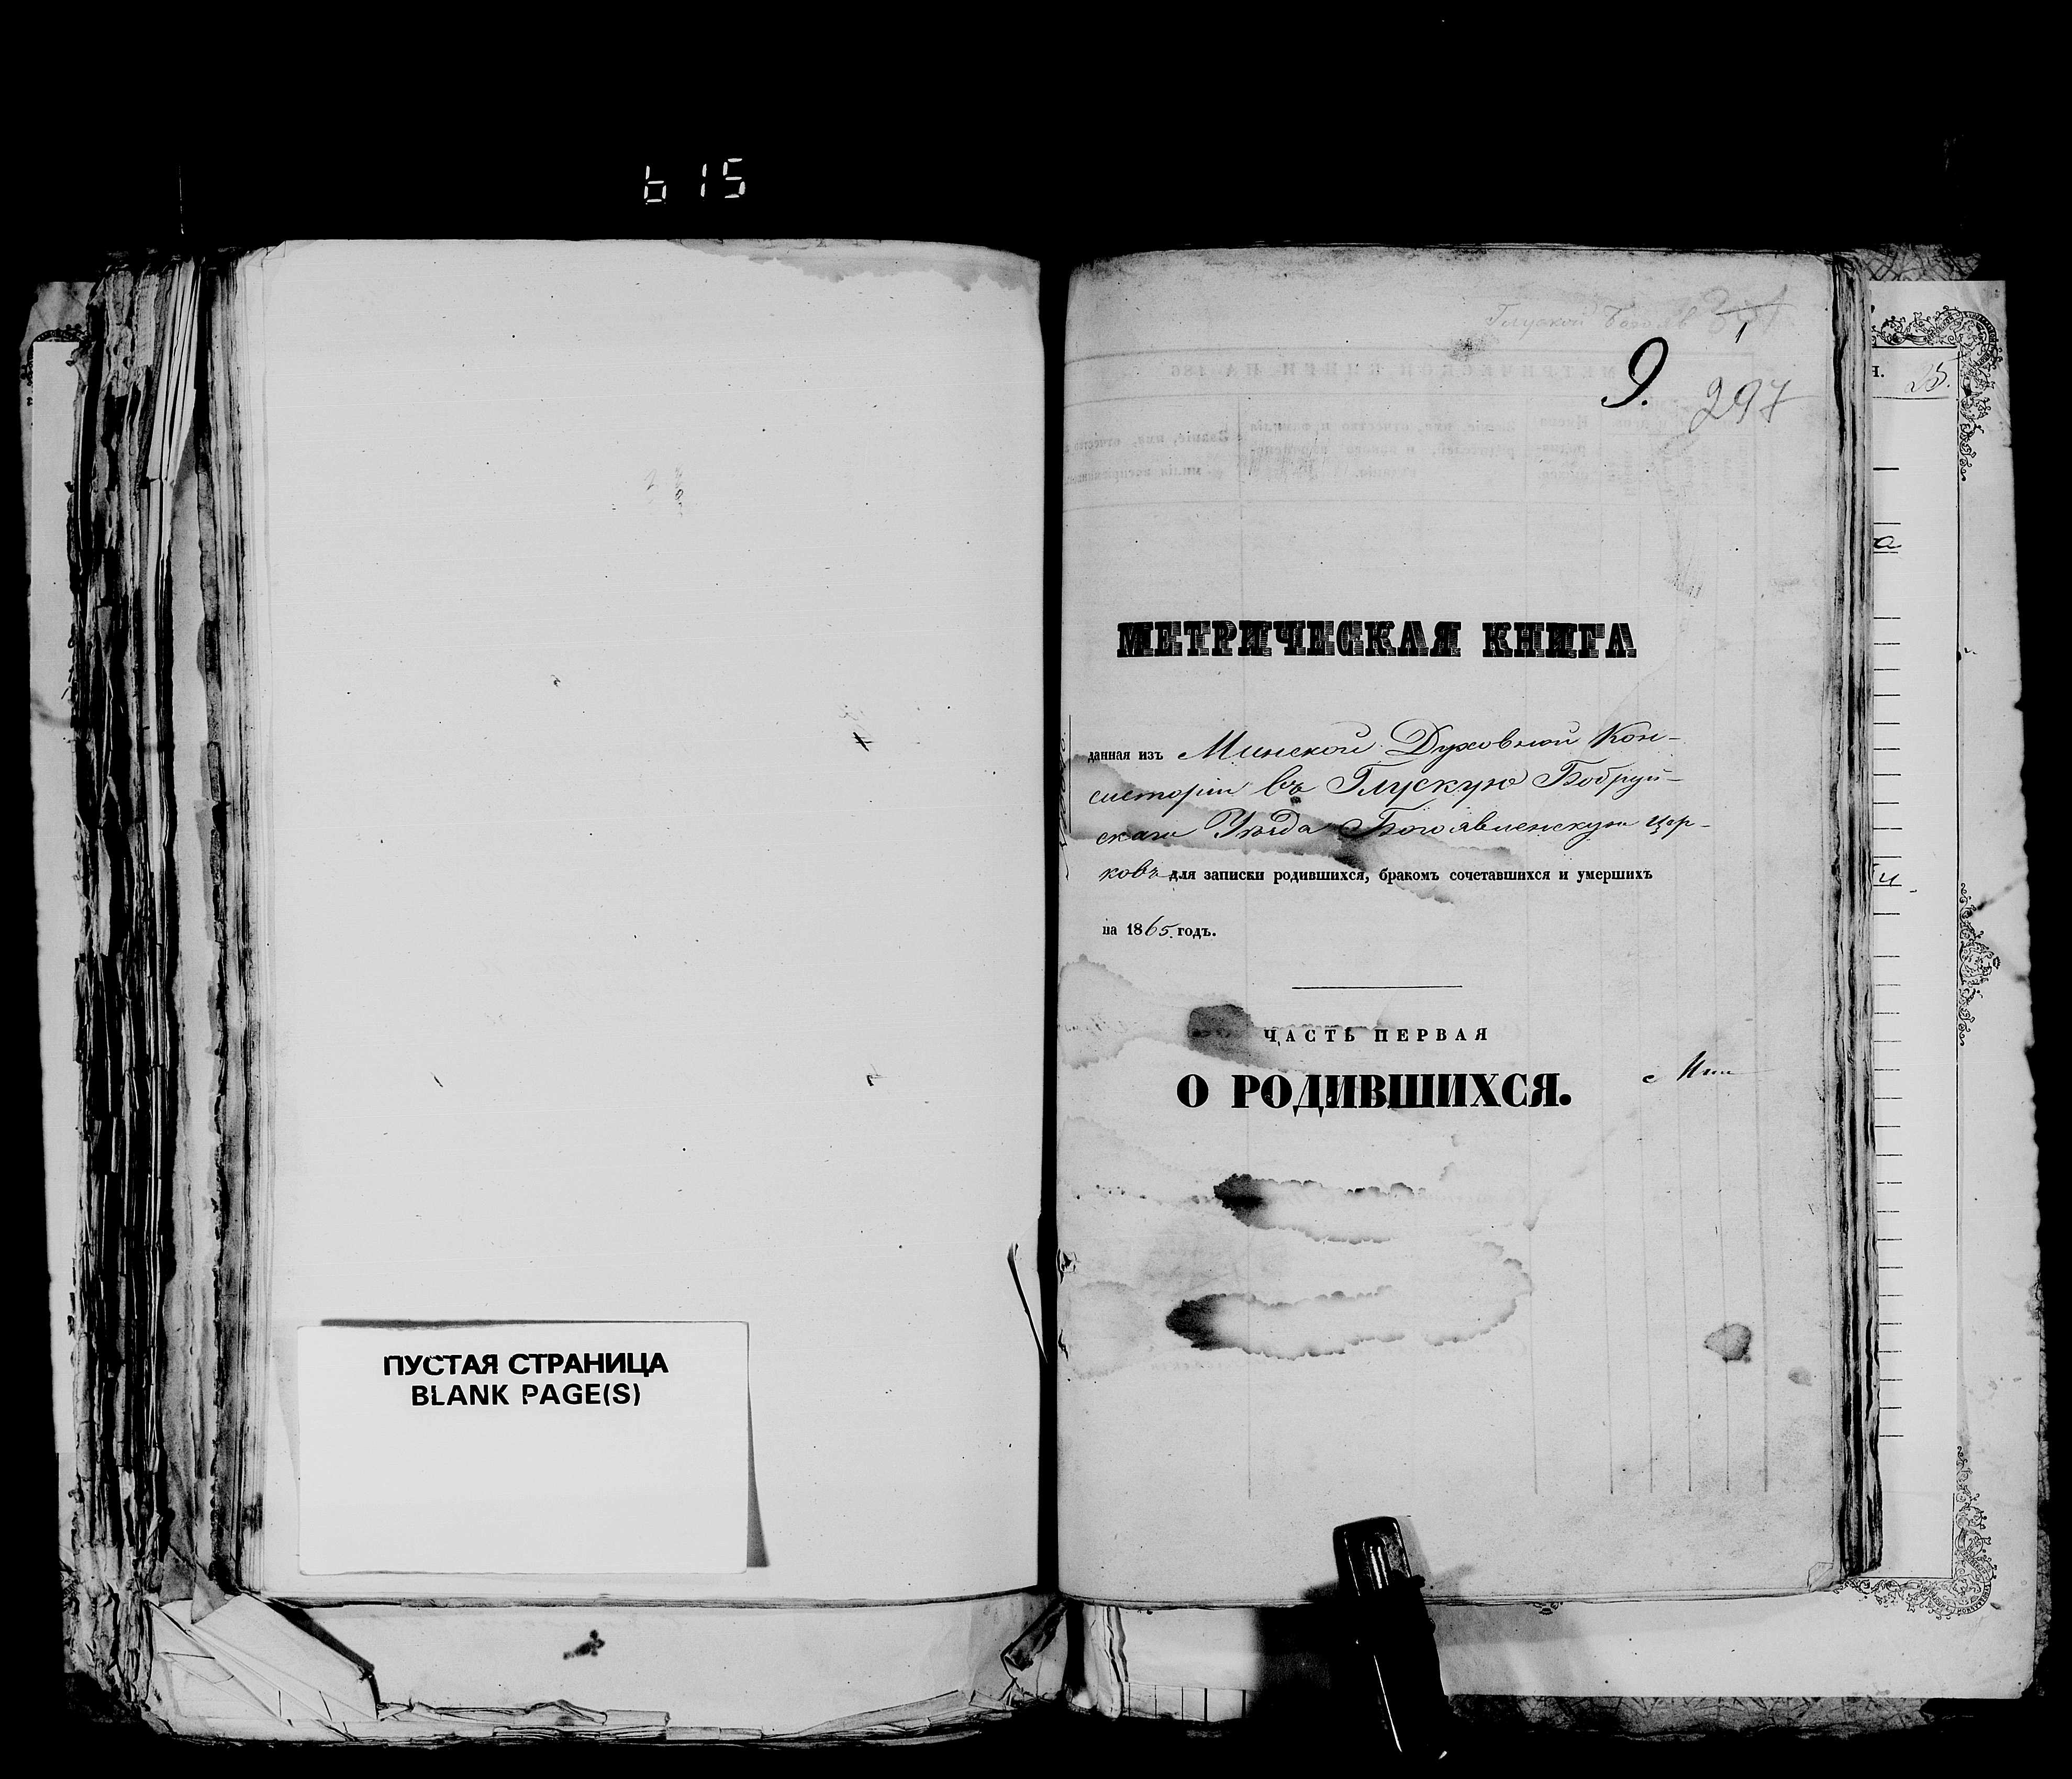 615
ПУСТАЯ СТРАНИЦА
BLANK PAGE(S)
Глуской Богояв
9.
297
МЕТРИЧЕСКАЯ КНИГА
данная изъ Минской Духовной Кон-
систоріи въ Глускую Бобруй-
скаго Уѣзда Богоявленскую цер-
ковь для записки родившихся, бракомъ сочетавшихся и умершихъ
на 1865 годъ.
ЧАСТЬ ПЕРВАЯ
О РОДИВШИХСЯ.
25.